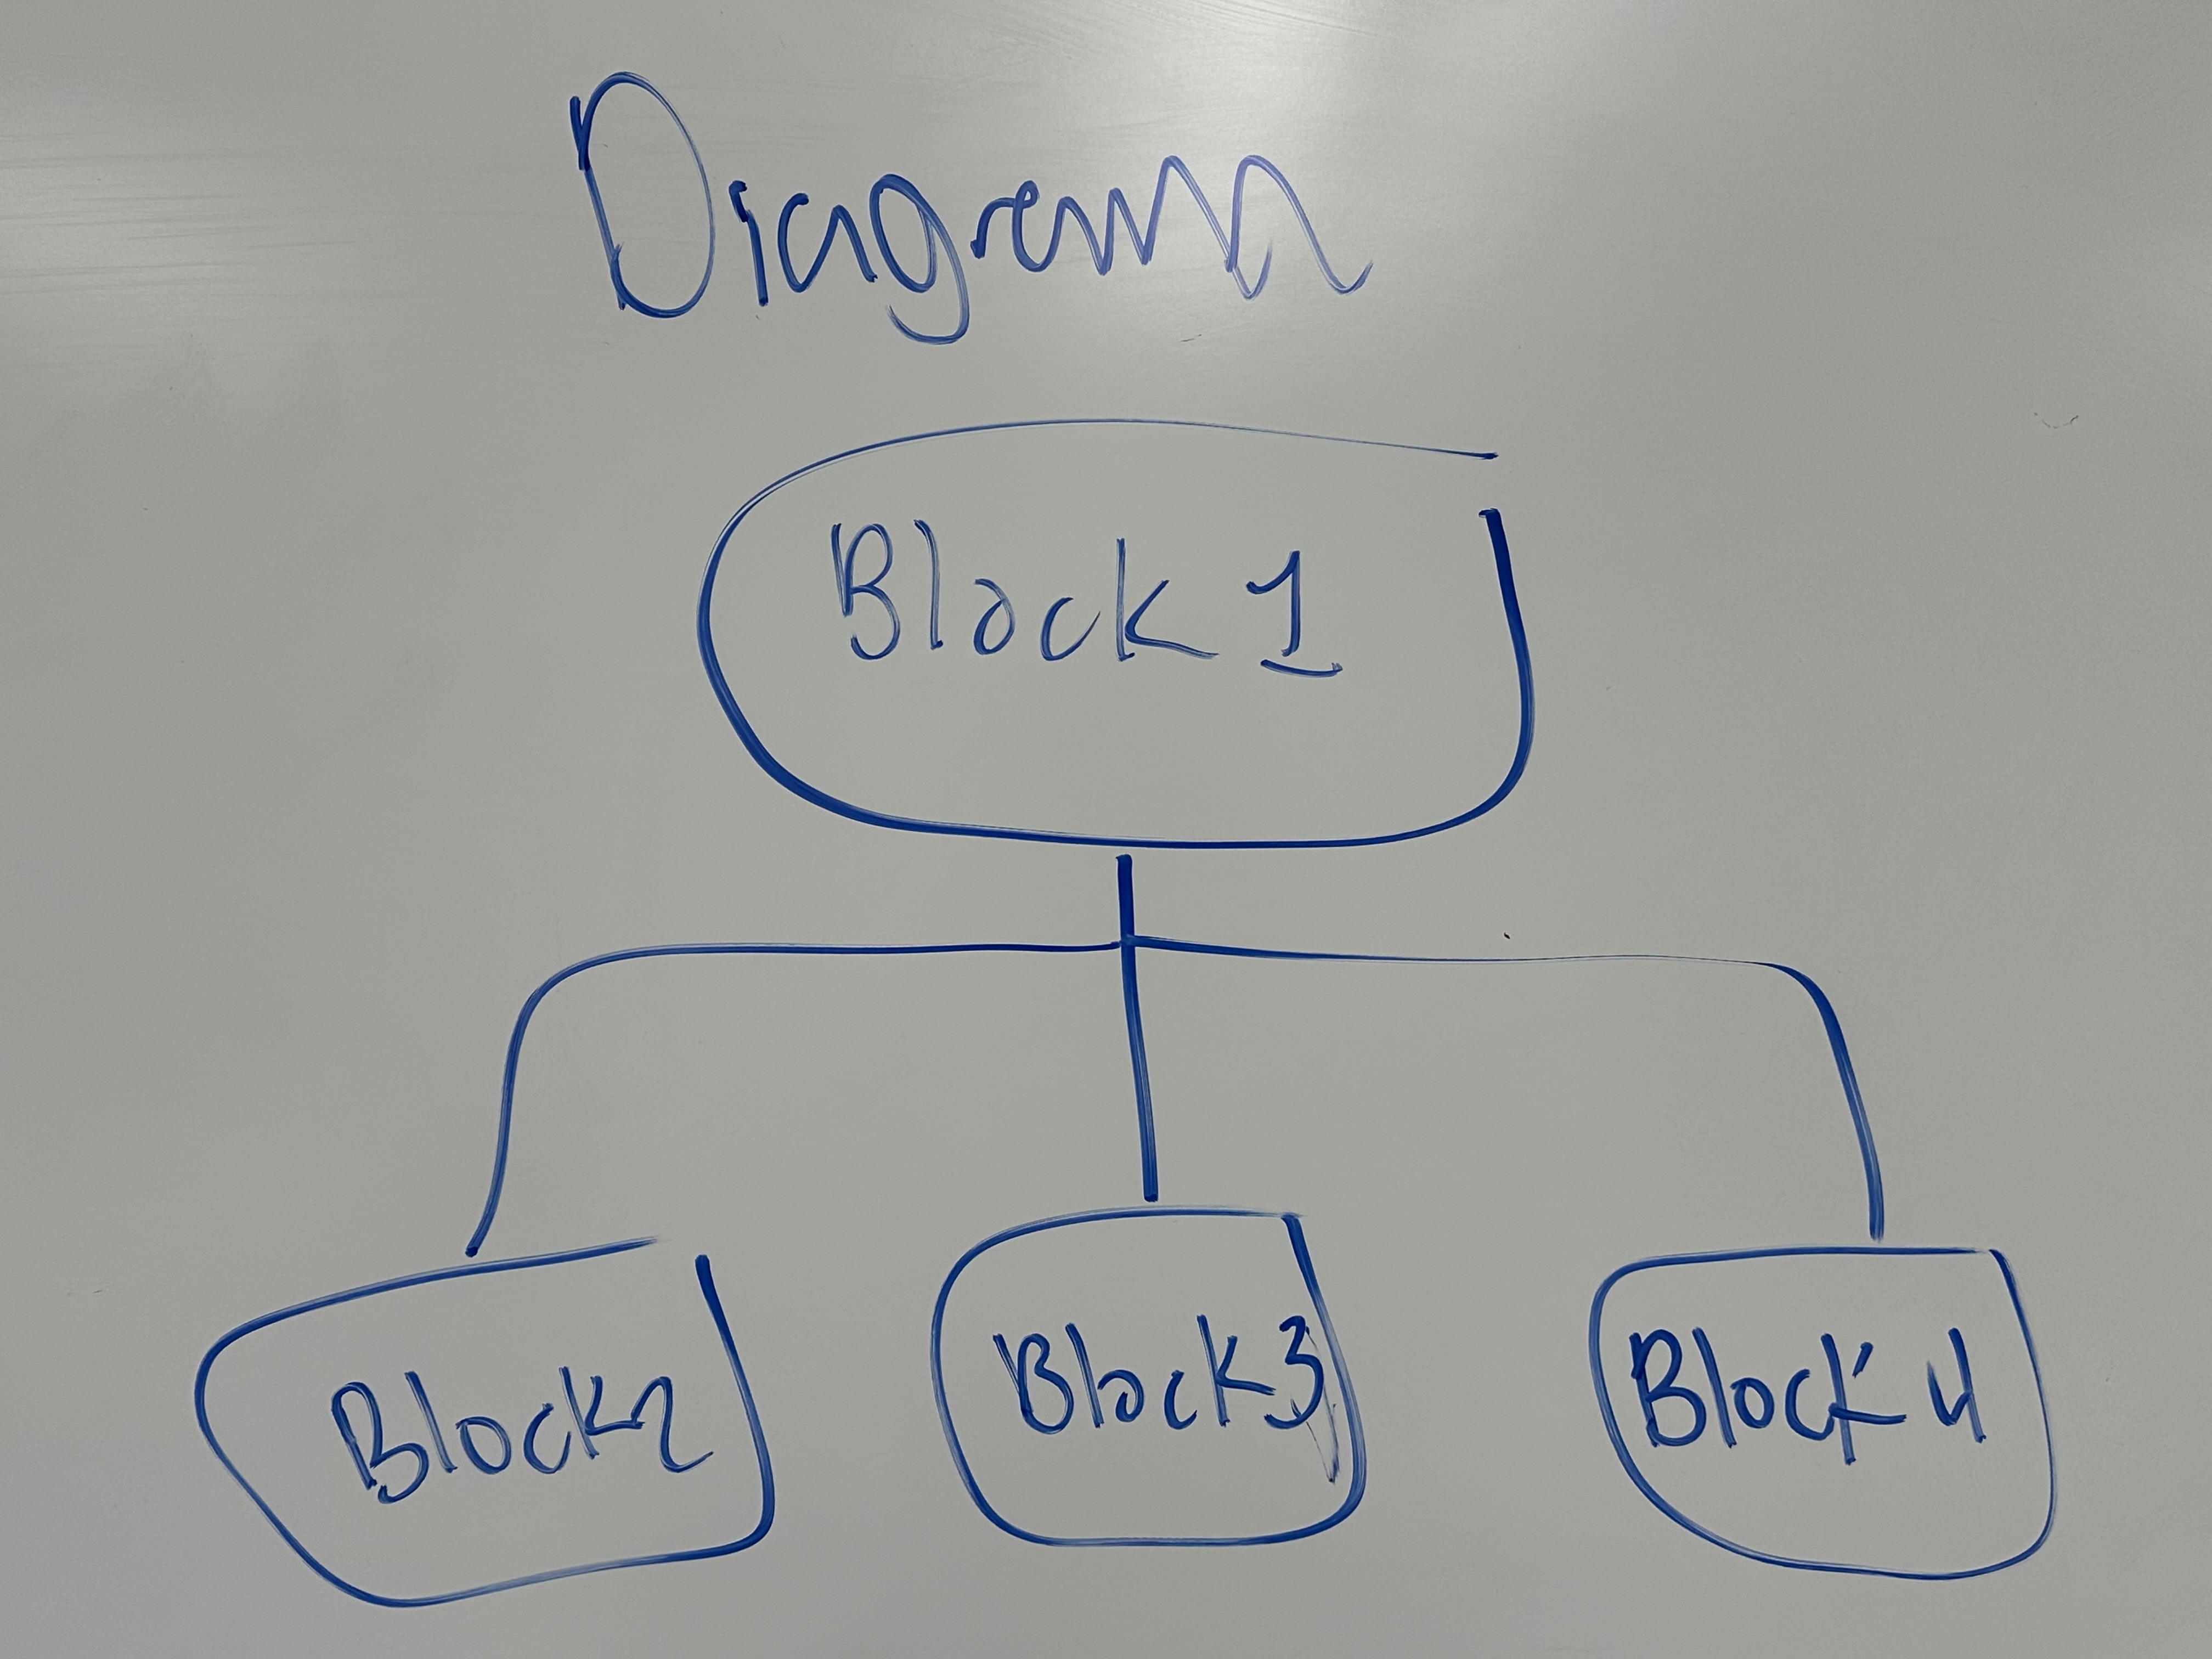 Diagram
Block 1
Block 2
Block 3
Block 4